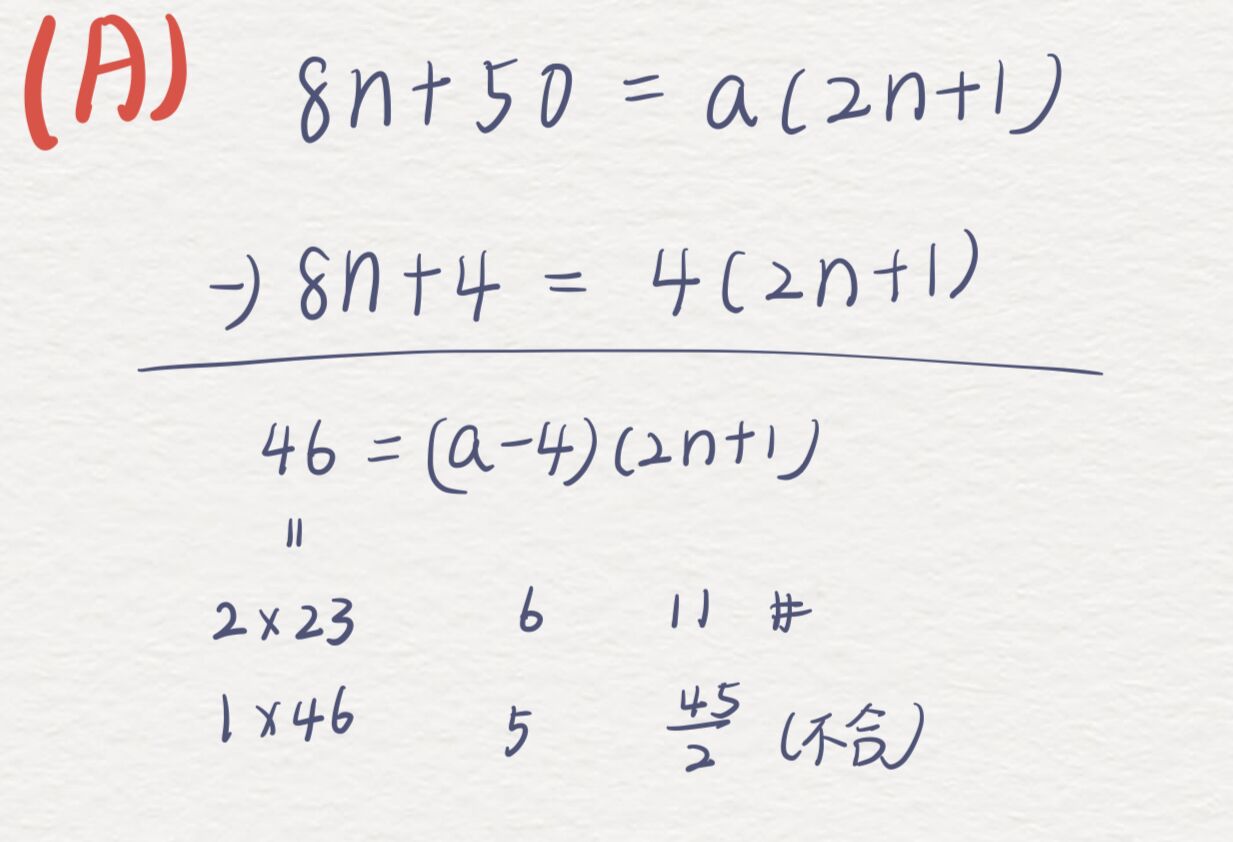 (A) 8n+50 = a(2n+1)
-) 8n+4 = 4(2n+1)
46 = (a-4)(2n+1)
=
2×23 6 11 #
1×46 5 45/2 (不合)